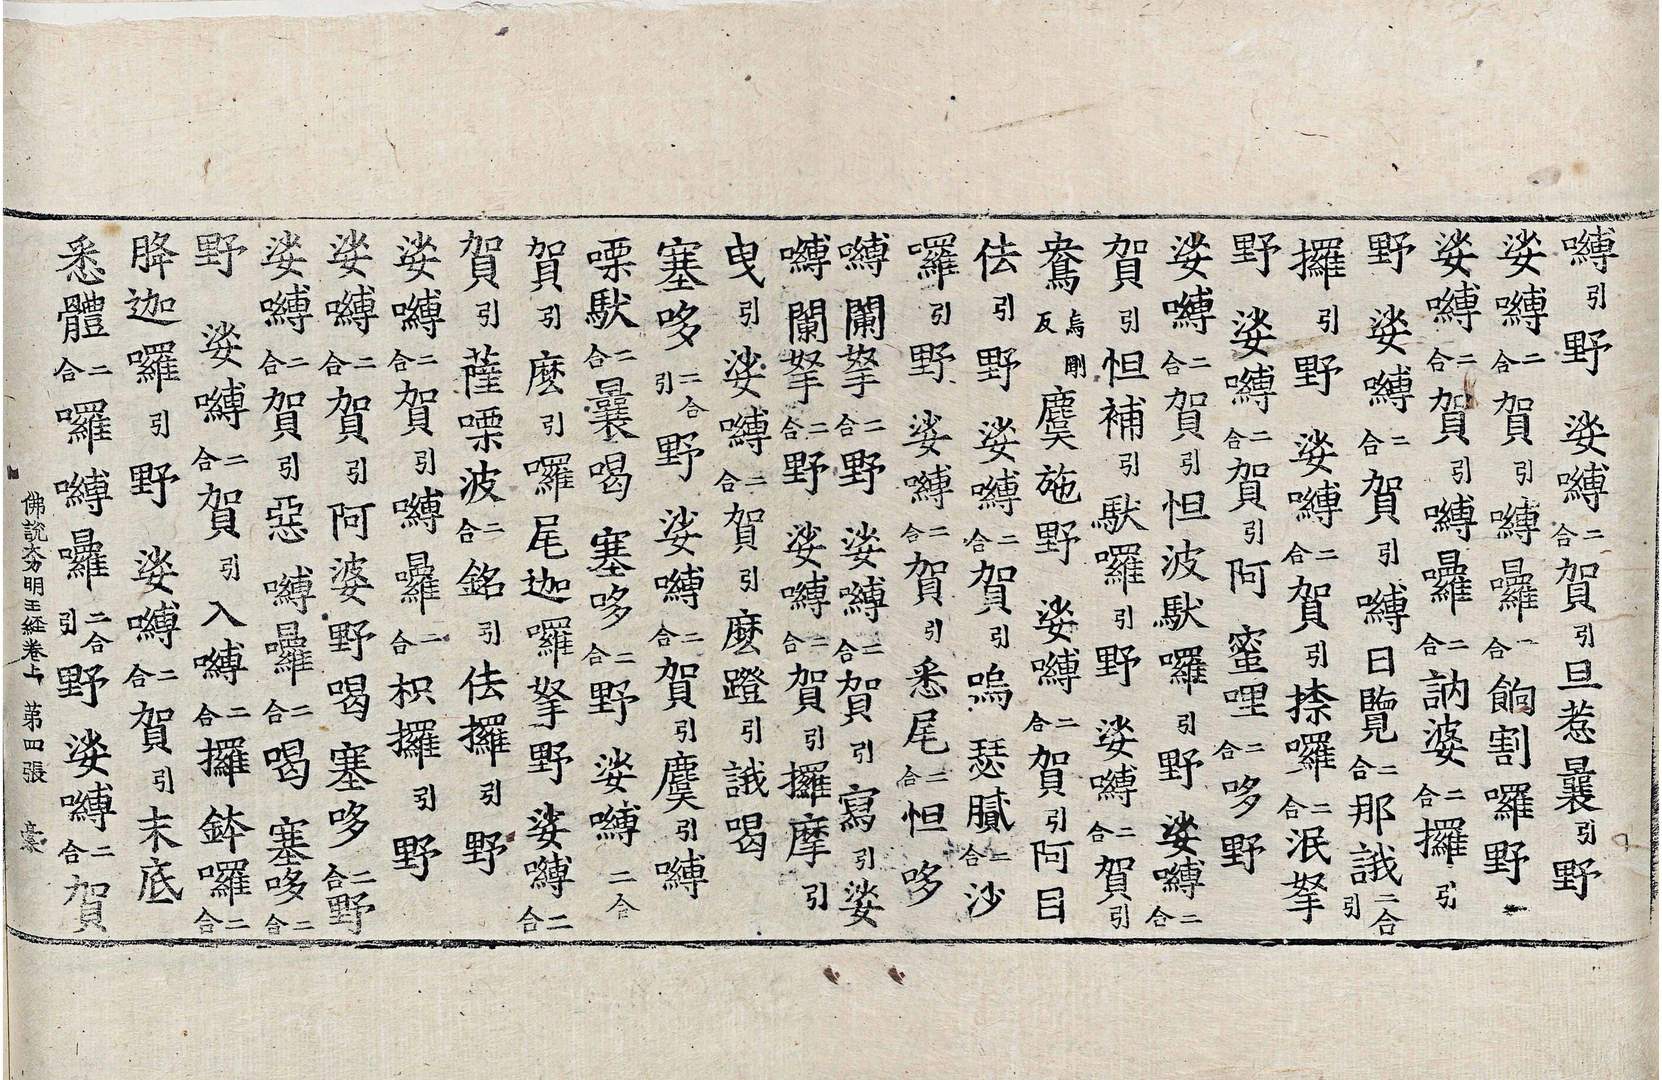 嚩引野 娑嚩二合賀引旦惹曩引野
娑嚩二合賀引嚩囉二合餉割囉野
娑嚩二合賀引嚩囉二合訥婆二合攞引
野 娑嚩二合賀引嚩日覽二合那誐二合引
攞引野 娑嚩二合賀引捺囉二合泯拏
野 娑嚩二合賀引阿蜜哩二合哆野
娑嚩二合賀引怛波馱囉引野 娑嚩二合
賀引怛補引馱囉引野 娑嚩二合賀引
鴦烏剛反麌施野 娑嚩二合賀引阿目
佉引野 娑嚩二合賀引嗚瑟膩二合沙
囉引野 娑嚩二合賀引悉尾二合怛哆
嚩闌拏二合野 娑嚩二合賀引寫引娑
嚩闌拏二合野 娑嚩二合賀引攞摩引
曳引娑嚩二合賀引麽蹬引誐喝
塞哆二合引野 娑嚩二合賀引麌引嚩
㗚馱二合曩喝 塞哆二合野 娑嚩二合
賀引麽引囉尾迦囉拏野 娑嚩二合
賀引薩㗚波二合銘引佉攞引野
娑嚩二合賀引嚩囉二合枳攞引野
娑嚩二合賀引阿婆野喝塞哆二合野
娑嚩二合賀引惡嚩囉二合喝 塞哆二合
野 娑嚩二合賀引入嚩二合攞鉢囉二合
胮迦囉引野 娑嚩二合賀引末底
悉體二合囉嚩囉二合引野 娑嚩二合賀
佛說大力明王經卷上 第四張